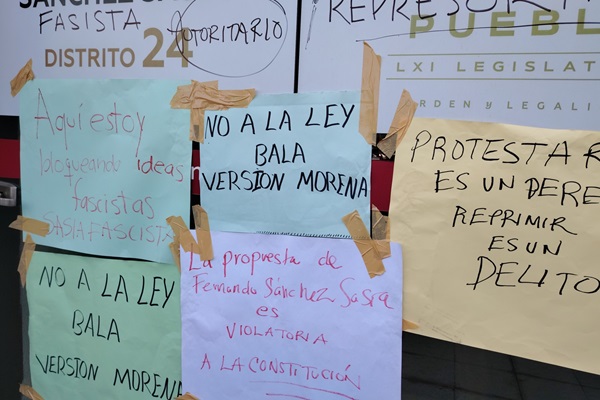 SÁNCHEZ SA
FASISTA
AUTORITARIO
DISTRITO 24
REPRESOR
PUEBL
LXI LEGISLAT
RDEN y LEGALI
Aqui estoy
bloqueando ideas
fascistas
SASIAFASCISTA
NO A LA LEY
BALA
VERSION MORENA
PROTESTAR
ES UN DERE
REPRIMIR
ES UN
DELITO
NO A LA LEY
BALA
VERSION MORENA
La propuesta de
Fernando Sánchez Sasia
es
VIOLATORIA
A LA CONSTITUCIÓN